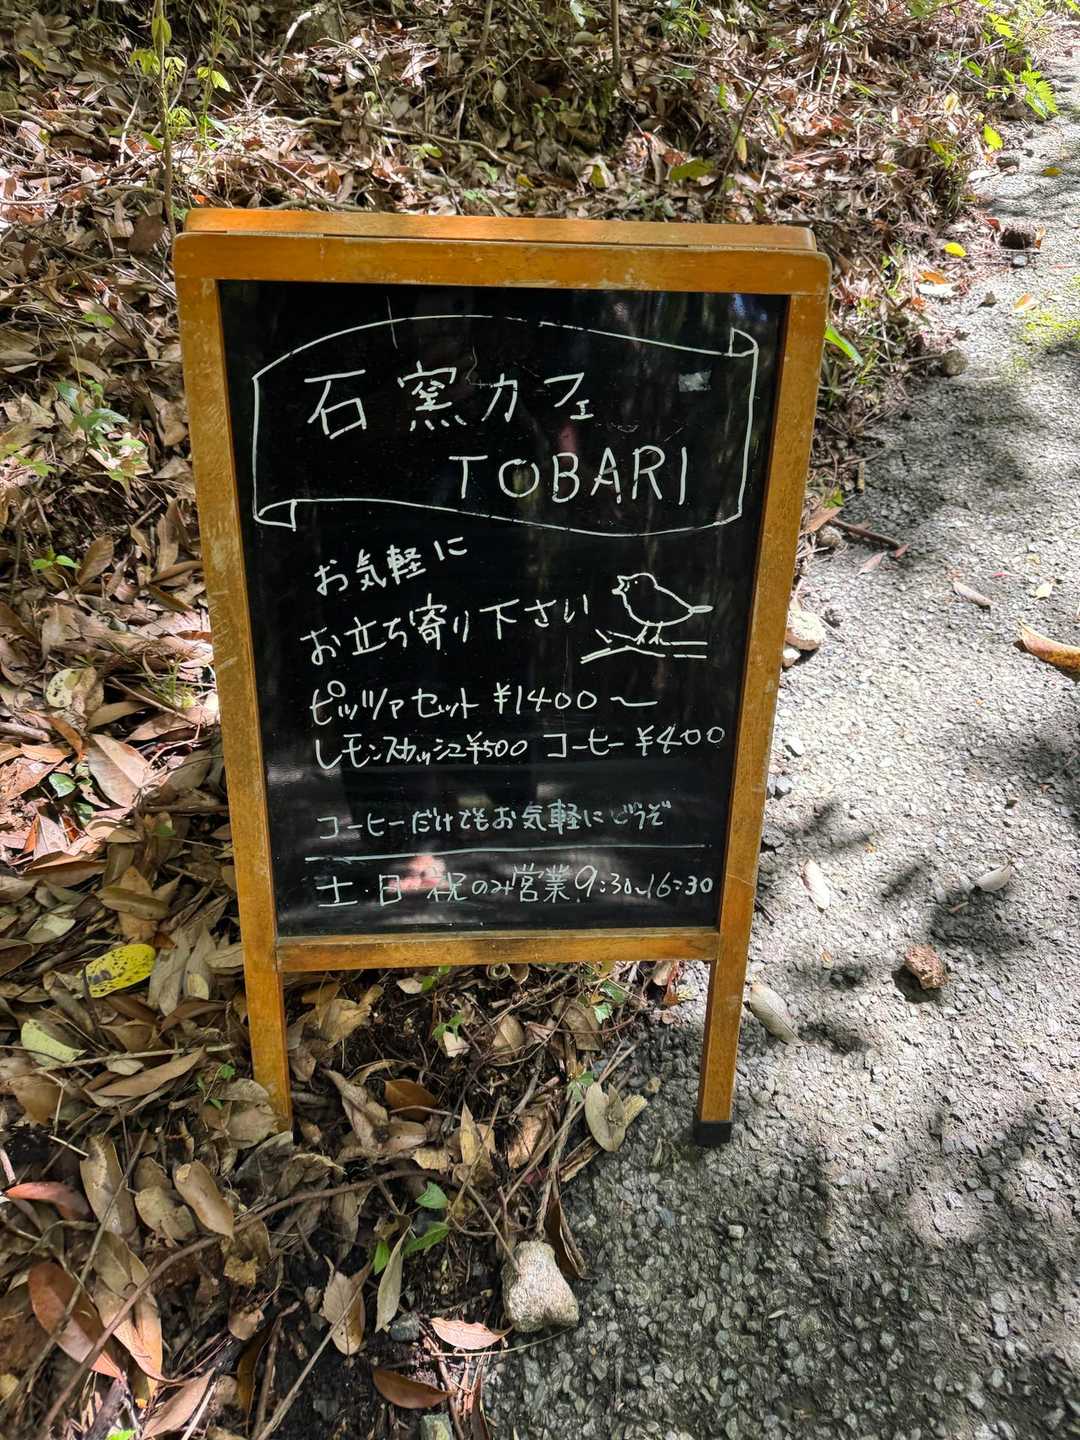 石窯カフェ
TOBARI
お気軽に
お立ち寄り下さい
ピッツァセット ¥1400〜
レモンスカッシュ¥500 コーヒー ¥400
コーヒーだけでもお気軽にどうぞ
土・日 祝のみ営業 9:30~16:30